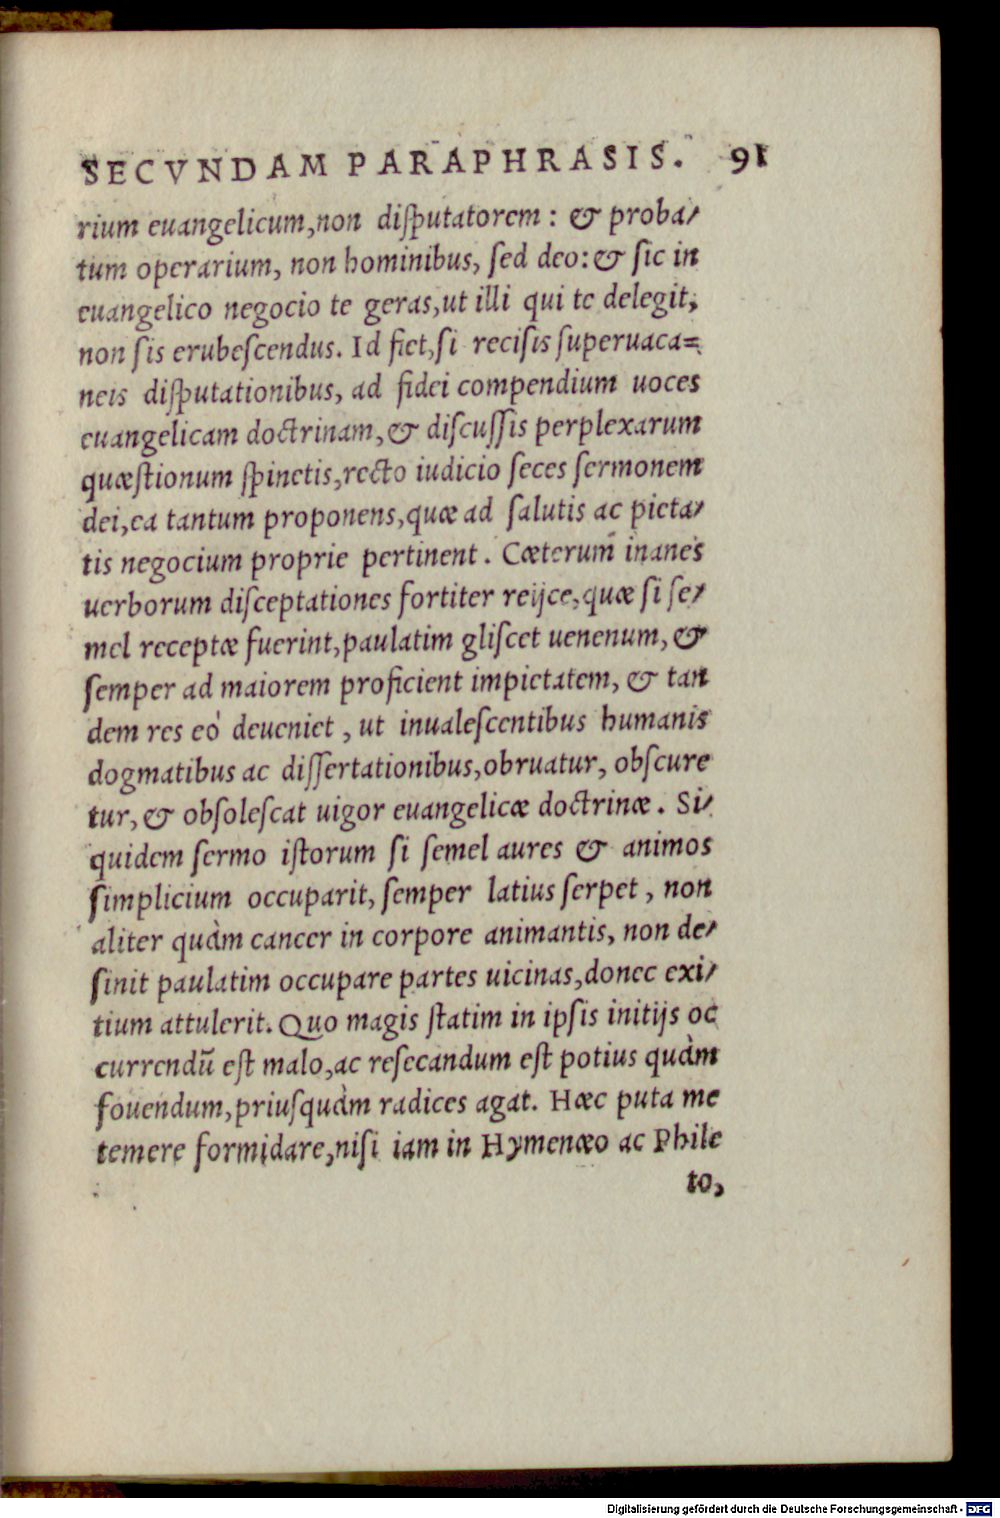 SECVNDAM PARAPHRASIS. 91
rium euangelicum,non diſputatorem : & proba/
tum operarium, non hominibus, ſed deo:& ſic in
euangelico negocio te geras,ut illi qui te delegit,
non ſis erubeſcendus. Id fiet,ſi reciſis ſuperuaca=
neis diſputationibus, ad fidei compendium uoces
euangelicam doctrinam,& diſcuſſis perplexarum
quæſtionum ſpinetis,recto iudicio ſeces ſermonem
dei,ea tantum proponens,quæ ad ſalutis ac pieta/
tis negocium proprie pertinent. Cæterum inanes
uerborum diſceptationes fortiter reijce,quæ ſi ſe/
mel receptæ fuerint,paulatim gliſcet uenenum,&
ſemper ad maiorem proficient impietatem, & tan
dem res eò deueniet, ut inualeſcentibus humanis
dogmatibus ac diſſertationibus,obruatur, obſcure
tur,& obſoleſcat uigor euangelicæ doctrinæ. Si/
quidem ſermo iſtorum ſi ſemel aures & animos
ſimplicium occuparit, ſemper latius ſerpet, non
aliter quàm cancer in corpore animantis, non de/
ſinit paulatim occupare partes uicinas,donec exi/
tium attulerit. Quo magis ſtatim in ipſis initijs oc
currendū eſt malo,ac reſecandum eſt potius quàm
fouendum,priuſquàm radices agat. Hæc puta me
temere formidare,niſi iam in Hymenæo ac Phile
to,
Digitalisierung gefördert durch die Deutsche Forschungsgemeinschaft - DFG